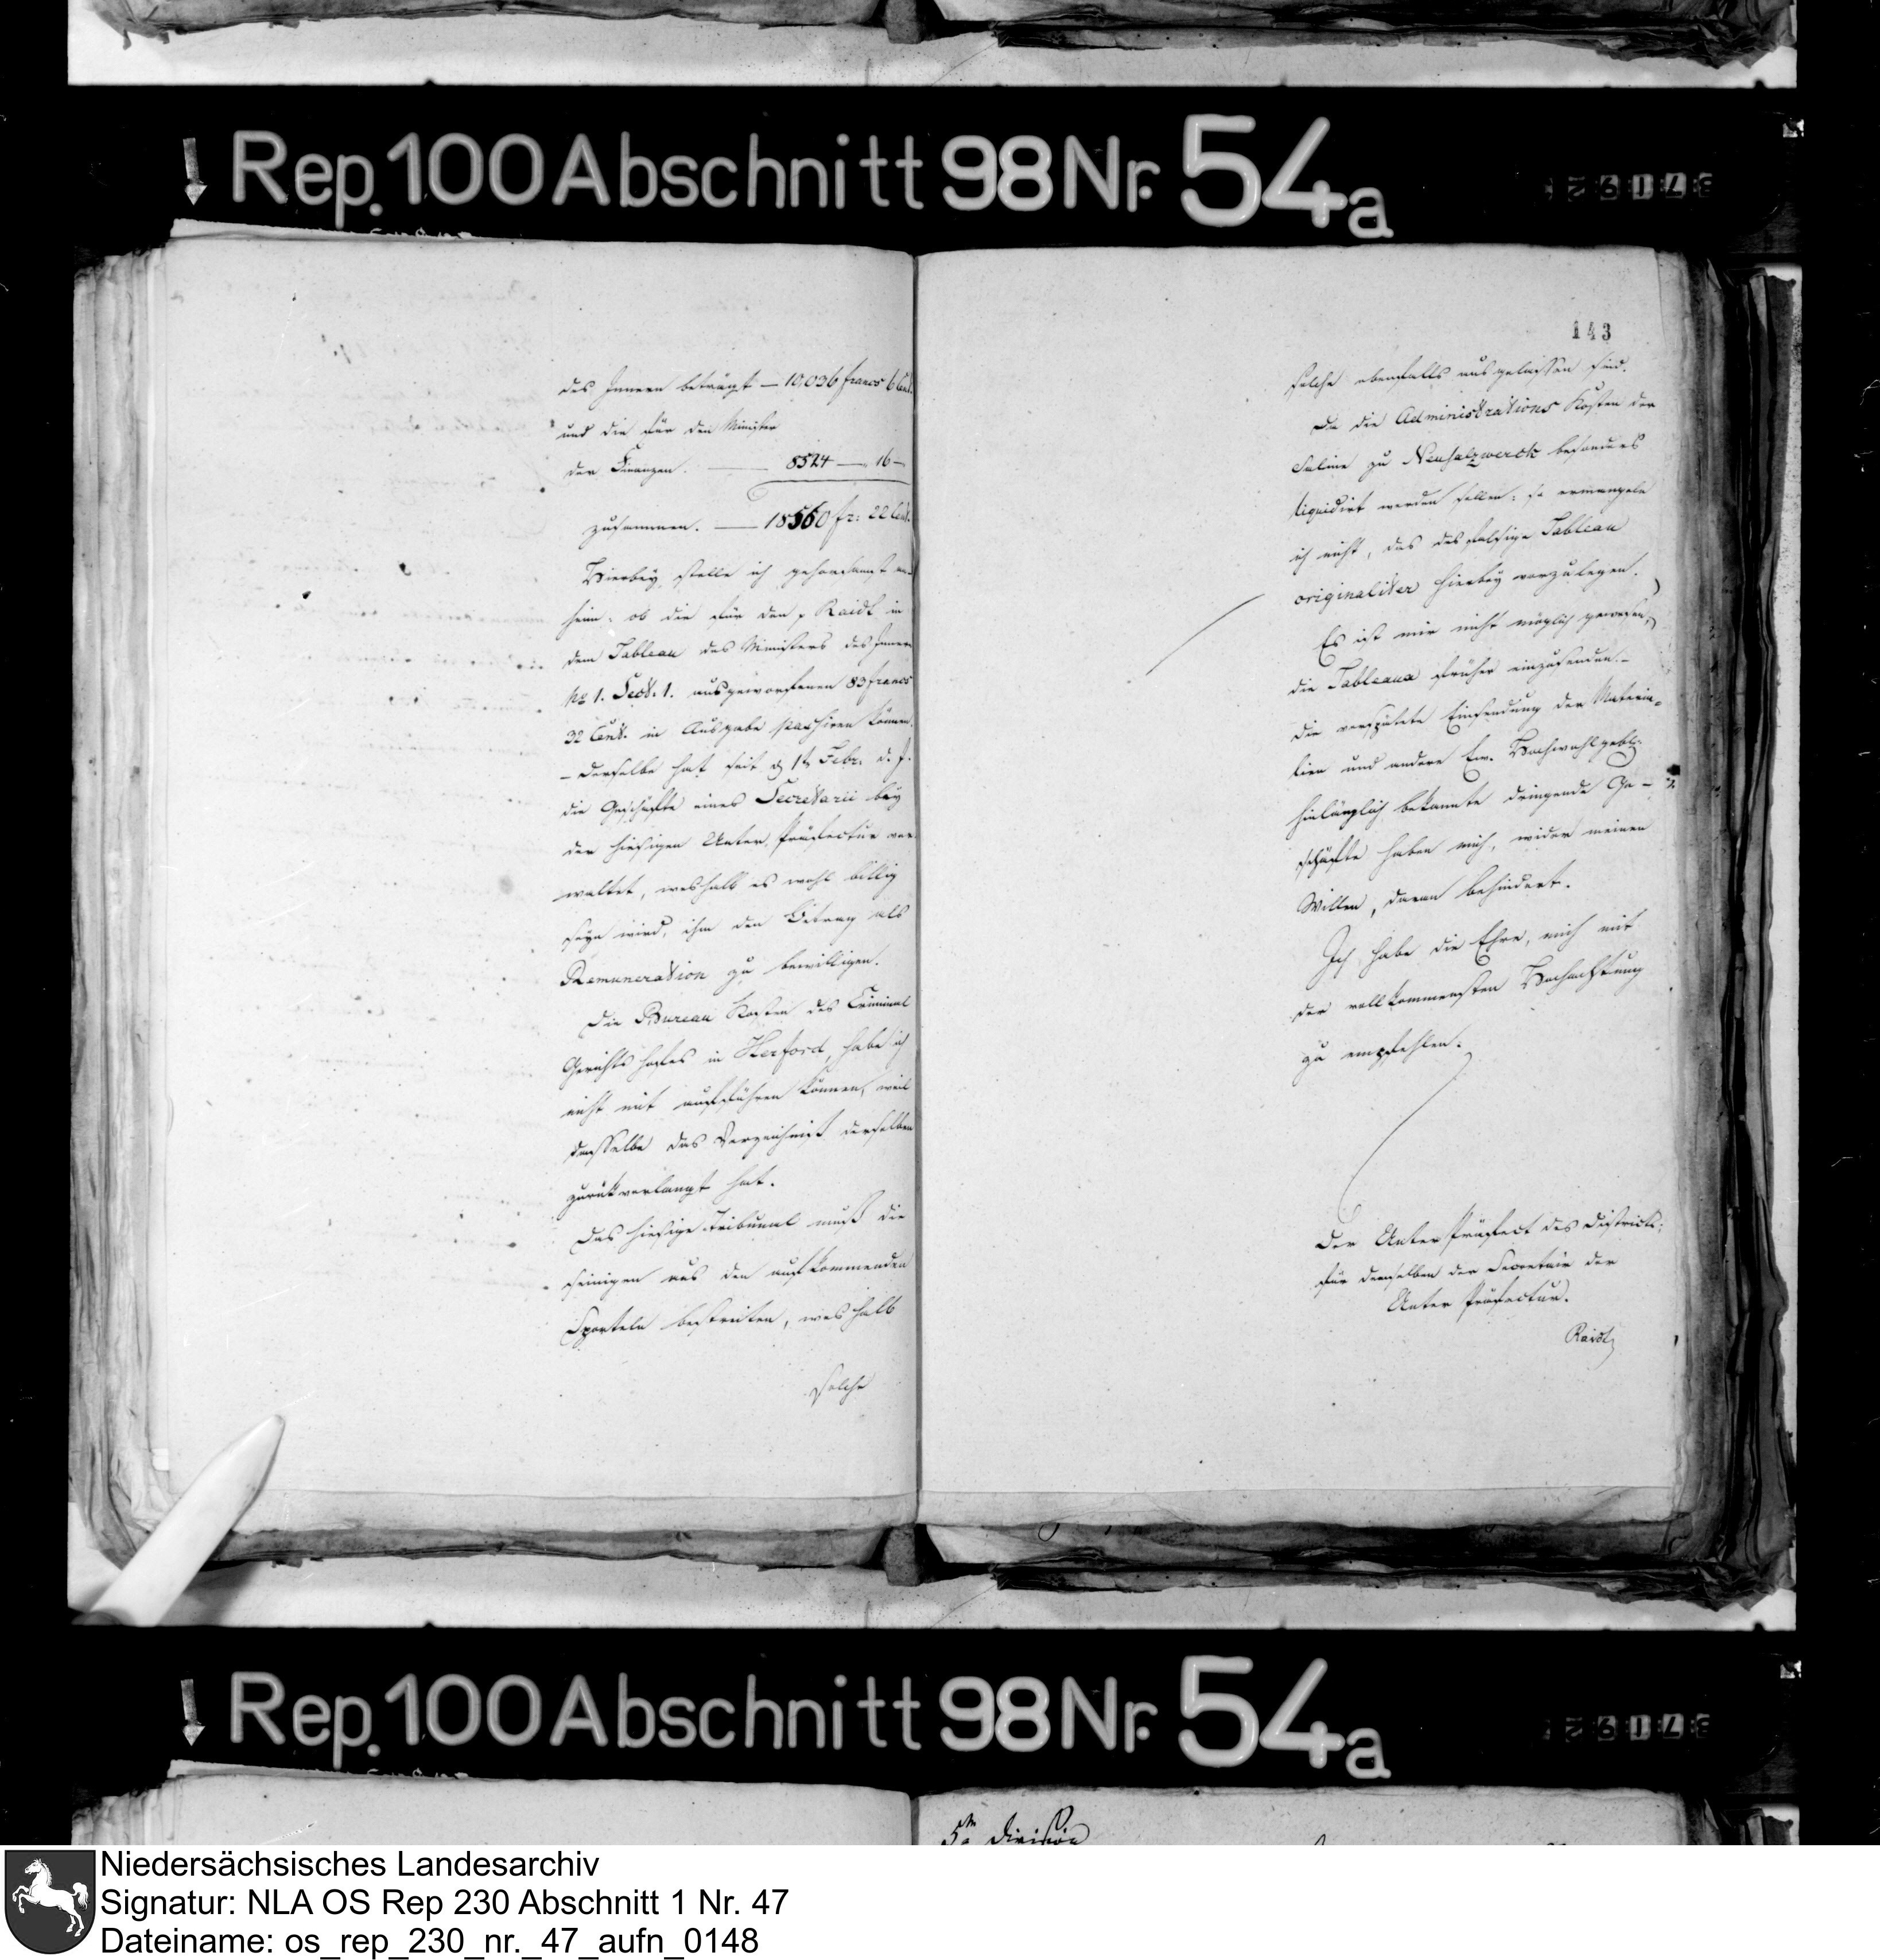 Rep. 100 Abschnitt 98 Nr. 54a
des Innern beträgt — 10,036 francs 6 Cent.
und die für den Minister
der Finanzen. — 8524 — 16 —
zusammen. — 18560 fr: 22 Cent.
Hierbey stelle ich gehorsamst an-
heim: ob die für den p Raidt in
dem Tableau des Ministers des Innern
No 1. Sect. 1. ausgeworfenen 83 francs
32 Cent. in Ausgabe passiren können.
– derselbe hat seit d 1t Febr. d. J.
die Geschäfte eines Secretarii bey
der hiesigen Unter Präfectur ver
waltet, weshalb es wohl billig
seyn wird, ihm den Betrag als
Remuneration zu bewilligen.
Die Bureau Kosten des Criminal
Gerichts hofes in Herford, habe ich
nicht mit aufführen können, weil
dasselbe das Verzeichniß derselben
zurückverlangt hat.
Das hiesige Tribunal muß die
seinigen aus den aufkommenden
Sporteln bestreiten, weshalb
solche
143
solche ebenfalls ausgelassen sind.
Da die Administrations Kosten der
Saline zu Neusalzwerck besonders
liquidirt werden sollen: so ermangele
ich nicht, das desfalsige Tableau
originaliter hierbey vorzulegen.
Es ist mir nicht möglich gewesen,
die Tableaux früher einzusenden. –
die verspätete Einsendung der Materia-
lien und andere Ew. Hochwohlgebr.
hinlänglich bekannte dringende Ge-
schäfte haben mich, wider meinen
Willen, daran behindert.
Ich habe die Ehre, mich mit
der vollkommensten Hochachtung
zu empfehlen.
Der Unter Präfect des Districts:
für denselben der Secretair der
Unter Präfectur.
Raidt
Rep. 100 Abschnitt 98 Nr. 54a
5te Division
Niedersächsisches Landesarchiv
Signatur: NLA OS Rep 230 Abschnitt 1 Nr. 47
Dateiname: os_rep_230_nr._47_aufn_0148